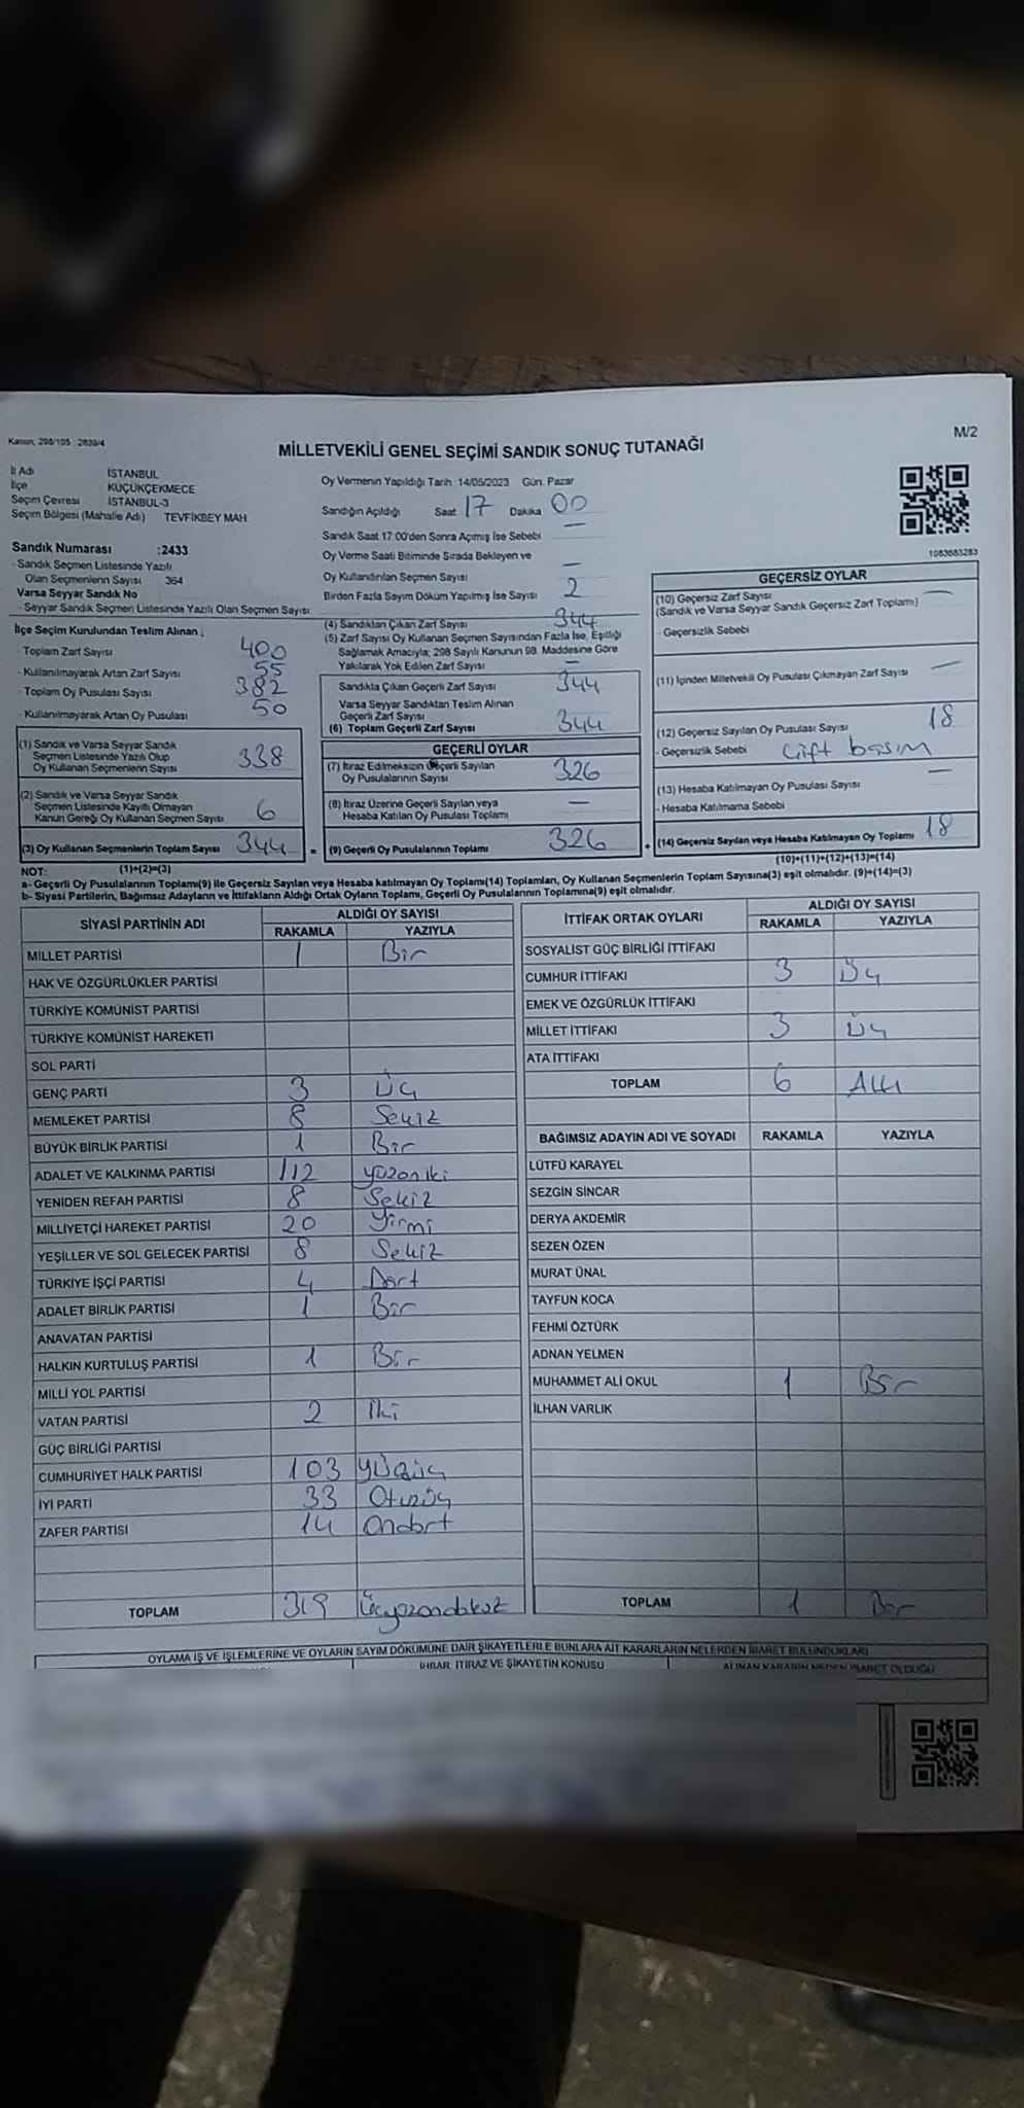 Kanun, 298/105 : 2839/4
M/2
MİLLETVEKİLİ GENEL SEÇİMİ SANDIK SONUÇ TUTANAĞI
İl Adı İSTANBUL
İlçe KÜÇÜKÇEKMECE
Seçim Çevresi İSTANBUL-3
Seçim Bölgesi (Mahalle Adı) TEVFİKBEY MAH
Sandık Numarası :2433
- Sandık Seçmen Listesinde Yazılı
Olan Seçmenlerin Sayısı 364
Varsa Seyyar Sandık No
- Seyyar Sandık Seçmen Listesinde Yazılı Olan Seçmen Sayısı:
Oy Vermenin Yapıldığı Tarih :14/05/2023 Gün: Pazar
Sandığın Açıldığı Saat 17 Dakika 00
Sandık Saat 17.00'den Sonra Açımış İse Sebebi —
Oy Verme Saati Bitiminde Sırada Bekleyen ve
Oy Kullandırılan Seçmen Sayısı —
Birden Fazla Sayım Döküm Yapılmış İse Sayısı 2
1083683283
İlçe Seçim Kurulundan Teslim Alınan ;
- Toplam Zarf Sayısı 400
- Kullanılmayarak Artan Zarf Sayısı 55
- Toplam Oy Pusulası Sayısı 382
- Kullanılmayarak Artan Oy Pusulası 50
(1) Sandık ve Varsa Seyyar Sandık
Seçmen Listesinde Yazılı Olup
Oy Kullanan Seçmenlerin Sayısı 338
(2) Sandık ve Varsa Seyyar Sandık
Seçmen Listesinde Kayıtlı Olmayan
Kanun Gereği Oy Kullanan Seçmen Sayısı 6
(3) Oy Kullanan Seçmenlerin Toplam Sayısı 344 =
(1)+(2)=(3)
(4) Sandıktan Çıkan Zarf Sayısı 344
(5) Zarf Sayısı Oy Kullanan Seçmen Sayısından Fazla İse, Eşitliği
Sağlamak Amacıyla; 298 Sayılı Kanunun 98. Maddesine Göre
Yakılarak Yok Edilen Zarf Sayısı —
Sandıkta Çıkan Geçerli Zarf Sayısı 344
Varsa Seyyar Sandıktan Teslim Alınan
Geçerli Zarf Sayısı
(6) Toplam Geçerli Zarf Sayısı 344
GEÇERLİ OYLAR
(7) İtiraz Edilmeksizin Geçerli Sayılan
Oy Pusulalarının Sayısı 326
(8) İtiraz Üzerine Geçerli Sayılan veya
Hesaba Katılan Oy Pusulası Toplamı —
(9) Geçerli Oy Pusulalarının Toplamı 326 +
GEÇERSİZ OYLAR
(10) Geçersiz Zarf Sayısı —
(Sandık ve Varsa Seyyar Sandık Geçersiz Zarf Toplamı)
- Geçersizlik Sebebi
(11) İçinden Milletvekili Oy Pusulası Çıkmayan Zarf Sayısı —
(12) Geçersiz Sayılan Oy Pusulası Sayısı 18
- Geçersizlik Sebebi Çift basım
(13) Hesaba Katılmayan Oy Pusulası Sayısı —
- Hesaba Katılmama Sebebi
(14) Geçersiz Sayılan veya Hesaba Katılmayan Oy Toplamı 18
(10)+(11)+(12)+(13)=(14)
NOT:
a- Geçerli Oy Pusulalarının Toplamı(9) ile Geçersiz Sayılan veya Hesaba katılmayan Oy Toplamı(14) Toplamları, Oy Kullanan Seçmenlerin Toplam Sayısına(3) eşit olmalıdır. (9)+(14)=(3)
b- Siyasi Partilerin, Bağımsız Adayların ve İttifakların Aldığı Ortak Oyların Toplamı, Geçerli Oy Pusulalarının Toplamına(9) eşit olmalıdır.
SİYASİ PARTİNİN ADI ALDIĞI OY SAYISI
RAKAMLA YAZIYLA
MİLLET PARTİSİ 1 Bir
HAK VE ÖZGÜRLÜKLER PARTİSİ
TÜRKİYE KOMÜNİST PARTİSİ
TÜRKİYE KOMÜNİST HAREKETİ
SOL PARTİ
GENÇ PARTİ 3 Üç
MEMLEKET PARTİSİ 8 Sekiz
BÜYÜK BİRLİK PARTİSİ 1 Bir
ADALET VE KALKINMA PARTİSİ 112 yüzoniki
YENİDEN REFAH PARTİSİ 8 Sekiz
MİLLİYETÇİ HAREKET PARTİSİ 20 Yirmi
YEŞİLLER VE SOL GELECEK PARTİSİ 8 Sekiz
TÜRKİYE İŞÇİ PARTİSİ 4 Dört
ADALET BİRLİK PARTİSİ 1 Bir
ANAVATAN PARTİSİ
HALKIN KURTULUŞ PARTİSİ 1 Bir
MİLLİ YOL PARTİSİ
VATAN PARTİSİ 2 İki
GÜÇ BİRLİĞİ PARTİSİ
CUMHURİYET HALK PARTİSİ 103 yüzüç
İYİ PARTİ 33 Otuzüç
ZAFER PARTİSİ 14 Ondört
TOPLAM 319 Üçyüzondokuz
İTTİFAK ORTAK OYLARI ALDIĞI OY SAYISI
RAKAMLA YAZIYLA
SOSYALİST GÜÇ BİRLİĞİ İTTİFAKI
CUMHUR İTTİFAKI 3 Üç
EMEK VE ÖZGÜRLÜK İTTİFAKI
MİLLET İTTİFAKI 3 Üç
ATA İTTİFAKI
TOPLAM 6 Altı
BAĞIMSIZ ADAYIN ADI VE SOYADI RAKAMLA YAZIYLA
LÜTFÜ KARAYEL
SEZGİN SİNCAR
DERYA AKDEMİR
SEZEN ÖZEN
MURAT ÜNAL
TAYFUN KOCA
FEHMİ ÖZTÜRK
ADNAN YELMEN
MUHAMMET ALİ OKUL 1 Bir
İLHAN VARLIK
TOPLAM 1 Bir
OYLAMA İŞ VE İŞLEMLERİNE VE OYLARIN SAYIM DÖKÜMÜNE DAİR ŞİKAYETLERLE BUNLARA AİT KARARLARIN NELERDEN İBARET BULUNDUKLARI
İHBAR, İTİRAZ VE ŞİKAYETİN KONUSU ALINAN KARARIN NEDEN İBARET OLDUĞU